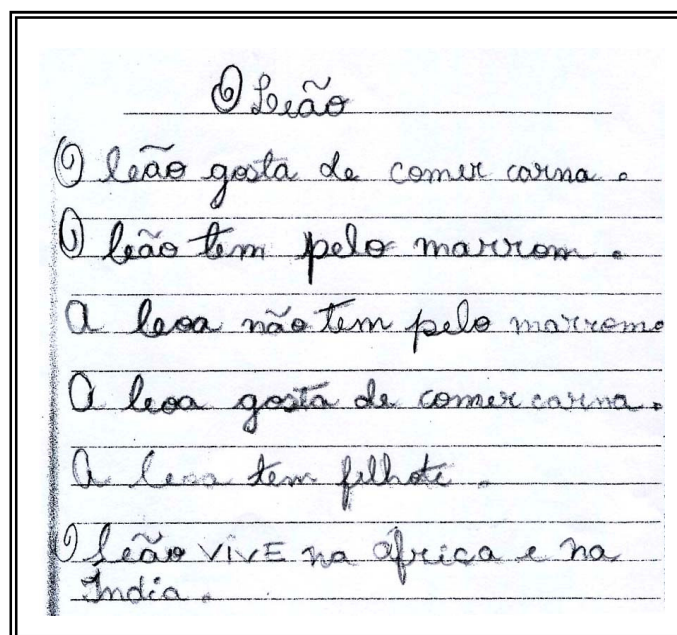 O Leão
O leão gosta de comer carna.
O leão tem pelo marrom.
A leoa não tem pelo marrom.
A leoa gosta de comer carna.
A leoa tem filhote.
O leão VIVE na africa e na
India.